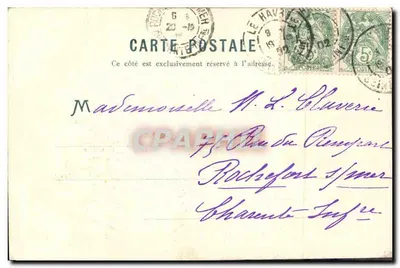 CARTE POSTALE
Ce côté est exclusivement réservé à l'adresse.
LE HAVRE
02
5
Mademoiselle M. L. Claverie
75 Rue du Rempart
Rochefort s/mer
Charente Infre
CPARAMA